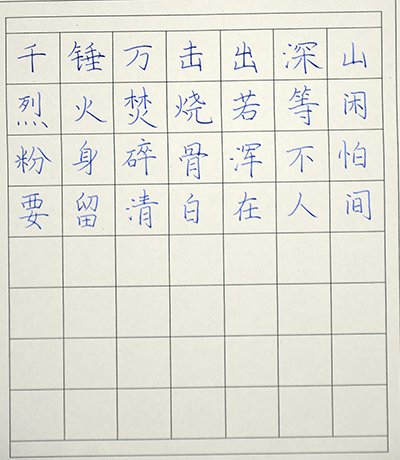 千锤万击出深山
烈火焚烧若等闲
粉身碎骨浑不怕
要留清白在人间